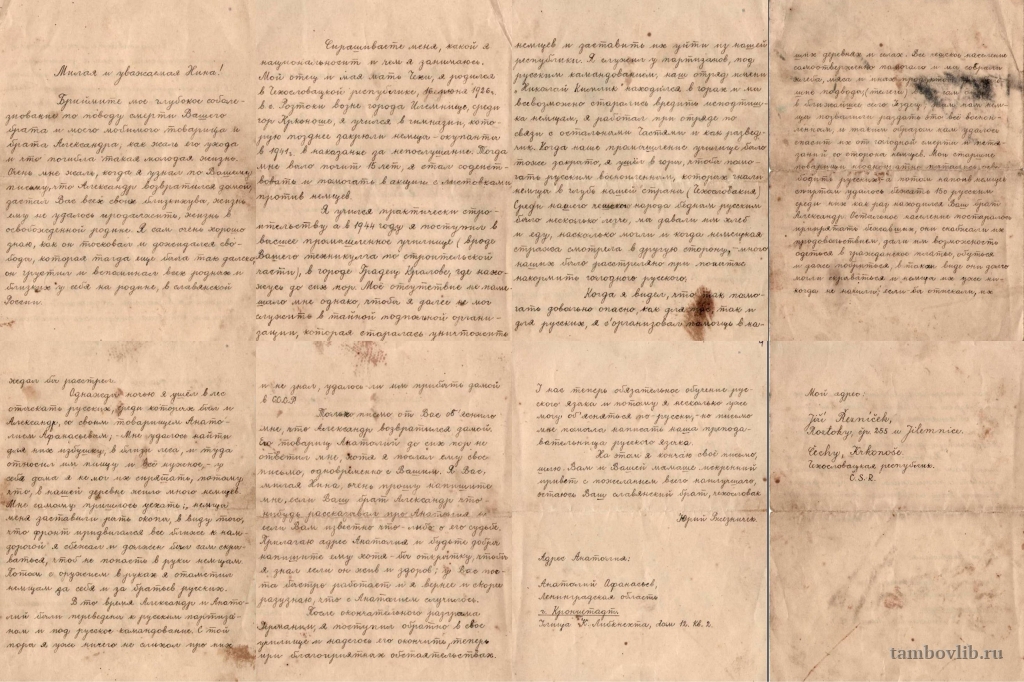 Милая и уважаемая Нина!
Примите мое глубокое собо­лез-
нование по поводу смерти Вашего
брата и моего милого товарища и
брата Александра, как жаль его ухода
и что погибла такая молодая жизнь.
Очень мне жаль, когда я узнал по Вашему
письму, что Александр возвратился домой,
застал Вас всех своих близких, жизнь
ему не удалось продолжить, жизнь в
освобожденной родине. Я сам очень хорошо
знаю, как он тосковал и дожидался сво-
боды, которая тагда еще была так далеко
он грустил и вспоминал всех родных и
близких у себя на родине, в славянской
России.
Спрашиваете меня, какой я
национальности и чем я занимаюсь.
Мой отец и мая мать Чехи, я родился
в Чехословацкой республике, 10 июня 1926г.
в с. Розтоки возле города Илемнице, среди
гор Крконоше, я учился в гимназии, кото-
рую позднее закрыли немцы-окупанты
в 1941, в наказание за непослушание. Тогда
мне было почти 15 лет, я стал содейст-
вовать и помогать в акции с листовками
против немцев.
Я учился практически стро-
ительству а в 1944 году я поступил в
высшее промышленное училище (вроде
Вашего техникулма по строительской
части), в городе Градец Кралове, где нахо-
жусь до сих пор. Мое отсутствие не поме-
шало мне однако, чтобы я далее не мог
служить в тайной подпольной органи-
зации, которая старалась уничтожить
немцев и заставить их уйти из нашей
республики. Я служил у партизанов, под
русским командованием, наш отряд имени
Николай находился в горах и мы
всевозможно старались вредить неподтиш-
ка немцам, я работал при отряде по
связи с остальными частями и как развед-
чик. Когда наше промышленное училище было
тоже закрыто, я ушёл в горы, чтобы помо-
гать русским военнопленным, которых гнали
немцы в глубь нашей страны (Чехословакия)
Среди нашего чешского народа бедным русским
было несколько легче, мы давали им хлеб
и еду, насколько могли и когда немецкая
стража смотрела в другую сторону, - много
наших было расстреляно при попытке
накормить голодного русского.
Когда я видел, что так помо-
гать довольно опасно, как для нас, так и
для русских, я с'организовал помощь в на-
ших деревнях и селах. Все чешское население
самоотверженно помогало и мы собрали
хлеба, мяса и иных
подводы, (телеги)
в ближайшее село Эздец. нам нем-
цы позволили раздать это всё военно-
пленным, и таким образом нам удалось
спасти их от голодной смерти и истя-
заний со стороны немцев. Мои старшие
осво-
бодить русских, а потом напоив немцев
спиртом удалось бежать 150 русским
среди них как раз находился Ваш брат
Александр. Остальное население постаралось
припрятать бежавших, они снабжали их
продовольствием, дали им возможность
одеться в гражданское платье, обуться
и даже побриться, в таком виде они долго
немцы их уже ни-
когда не нашли; если бы отыскали, их
4
ждал бы расстрел.
Однажды ночью я ушёл в лес
отыскать русских, среди которых был и
Александр, со своим товарищем Анато-
лием Афанасьевым, - Мне удалось найти
для них избушку, в близи леса, и туда
относил им пищу и всё нужное, - у
себя дома я не мог их спрятать, потому
что, в нашей деревне жило много немцев.
Мне самому пришлось уехать, немцы
меня заставили рать окопы, в виду того,
что фронт придвигался все ближе к нам.
Дорогой я сбежал и должен был сам скры-
ваться, чтоб не попасть в руки немцам.
Потом с оружием в руках я отомстил
немцам за себя и за братьев русских.
В то время Александр и Анато-
лий были переведены к русским партиза-
нам и под русское командование. С той
пора я уже ничего не слыхал про них
и не знал, удалось ли им прибыть домой
в СССР
Только письмо от Вас об'яснило
мне, что Александр возвратился домой.
Его товарищ Анатолий до сих пор не
ответил мне, хотя я послал ему свое
письмо, одновременно с Вашим. Я Вас,
милая Нина, очень прошу напишите
мне, если Ваш брат Александр что-
нибудь рассказывал про Анатолия и
если Вам известно что-либо о его судьбе.
Прилагаю адрес Анатолия и будьте добры
напишите ему хотя-бы открытку, чтобы
я знал если он жив и здоров; у Вас поч-
та быстро работает и я вернее и скоро
разузнаю, что с Анатолием случилось.
После окончательного разгрома
Германии, я поступил обратно в свое
училище и надеюсь его окончить, теперь
при благоприятных обстоятельствах.
У нас теперь обязательное обучение рус-
ского языка и потому я несколько уже
могу об'ясняться по-русски, - но письмо
мне помогла написать наша препода-
вательница русского языка.
На этом я кончаю своё письмо,
шлю Вам и Вашей мамаше искренний
привет с пожеланьем всего наилучшего,
остаюсь Ваш славянский брат, чехословак
Юрий Ржезничек
Адрес Анатолия:
Анатолий Афанасьев,
Ленинградская область
г. Кронштадт
Улица К. Либкнехта, дом 12. кв. 2.
Мой адрес:
Jiří Řezníček,
Roztoky, čp. 255 u Jilemnice.
Čechy, Krkonoše.
Чехословацкая республик.
Č.S.R.
tambovlib.ru